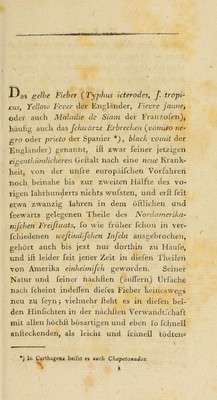 Das gelbe Fieber (Typhus icterodes, ſ. tropi-
cus, Yellow Fever der Engländer, Fievre jaune,
oder auch Maladie de Siam der Franzoſen),
häufig auch das ſchwarze Erbrechen (vomito ne-
gro oder prieto der Spanier *), black vomit der
Engländer) genannt, iſt zwar ſeiner jetzigen
eigenthümlicheren Geſtalt nach eine neue Krank-
heit, von der unſre europäiſchen Vorfahren
noch beinahe bis zur zweiten Hälfte des vo-
rigen Iahrhunderts nichts wuſsten, und erſt ſeit
etwa zwanzig Iahren in dem öſtlichen und
ſeewärts gelegenen Theile des Nordamerika-
niſchen Freiſtaats, ſo wie früher ſchon in ver-
ſchiedenen weſtindiſchen Inſeln ausgebrochen,
gehört auch bis jezt nur dorthin zu Hauſe,
und iſt leider ſeit jener Zeit in dieſen Theilen
von Amerika einheimiſch geworden. Seiner
Natur und ſeiner nächſten (äuſſern) Urſache
nach ſcheint indeſſen dieſes Fieber keineswegs
neu zu ſeyn; vielmehr ſteht es in dieſen bei-
den Hinſichten in der nächſten Verwandtſchaft
mit allen höchſt bösartigen und eben ſo ſchnell
anſteckenden, als leicht und ſchnell tödten-
*) In Carthagena heiſst es auch Chapetonadox.